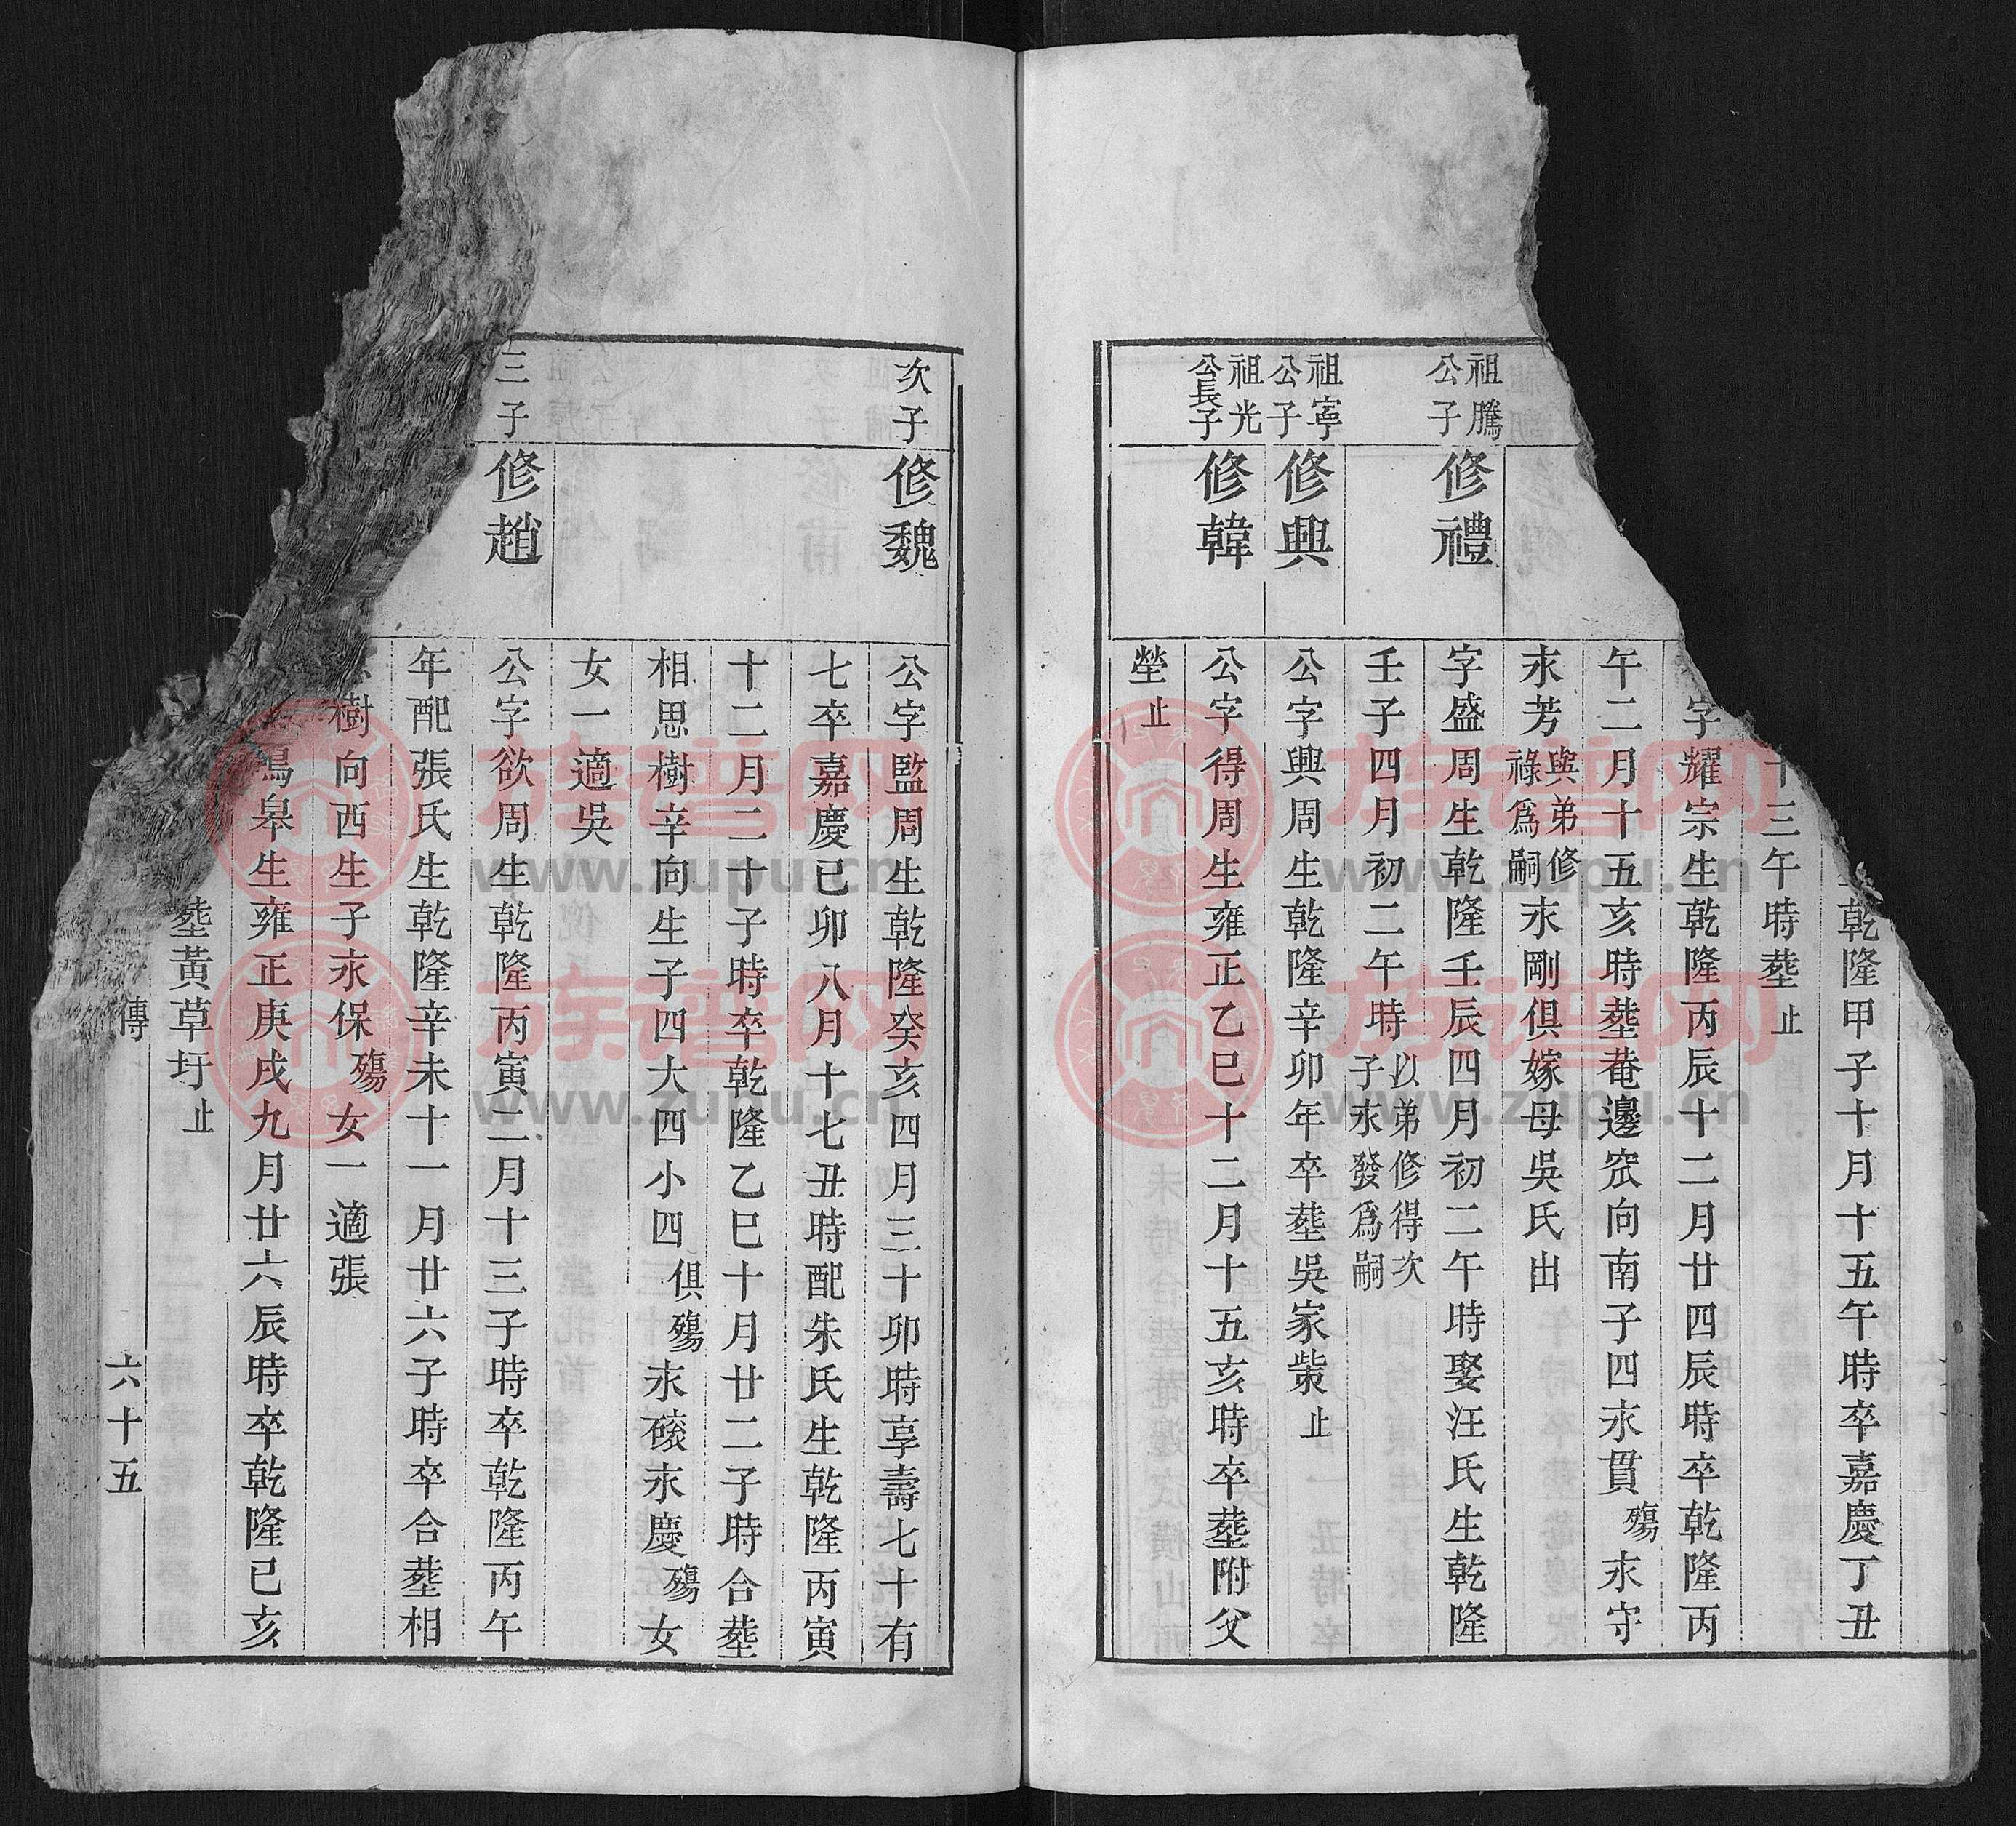 乾隆甲子十月十五午時卒嘉慶丁丑
十三午時塟止
字耀宗生乾隆丙辰十二月廿四辰時卒乾隆丙
午二月十五亥時塟菴邊窊向南子四永貫殤永守
永芳與弟修祿爲嗣永剛俱嫁母吳氏出
祖騰公子
修禮
字盛周生乾隆壬辰四月初二午時娶汪氏生乾隆
壬子四月初二午時以弟修得次子永發爲嗣
祖寧公子
修興
公字興周生乾隆辛卯年卒塟吳家柴止
祖光公長子
修韓
公字得周生雍正乙巳十二月十五亥時卒塟附父
塋止
次子
修魏
公字監周生乾隆癸亥四月三十卯時享壽七十有
七卒嘉慶己卯八月十七丑時配朱氏生乾隆丙寅
十二月二十子時卒乾隆乙巳十月廿二子時合塟
相思樹辛向生子四大四小四俱殤永磙永慶殤女
女一適吳
三子
修趙
公字欲周生乾隆丙寅二月十三子時卒乾隆丙午
年配張氏生乾隆辛未十一月廿六子時卒合塟相
樹向西生子永保殤女一適張
鳴皋生雍正庚戌九月廿六辰時卒乾隆己亥
塟黃草圩止
傳
六十五
族谱网
www.zupu.cn
族谱网
www.zupu.cn
族谱网
www.zupu.cn
族谱网
www.zupu.cn